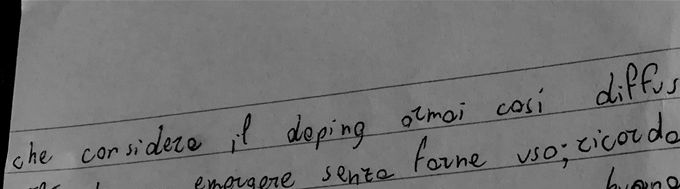 che considera il doping ormai così diffus
emergere senza farne uso; ricordo
buona